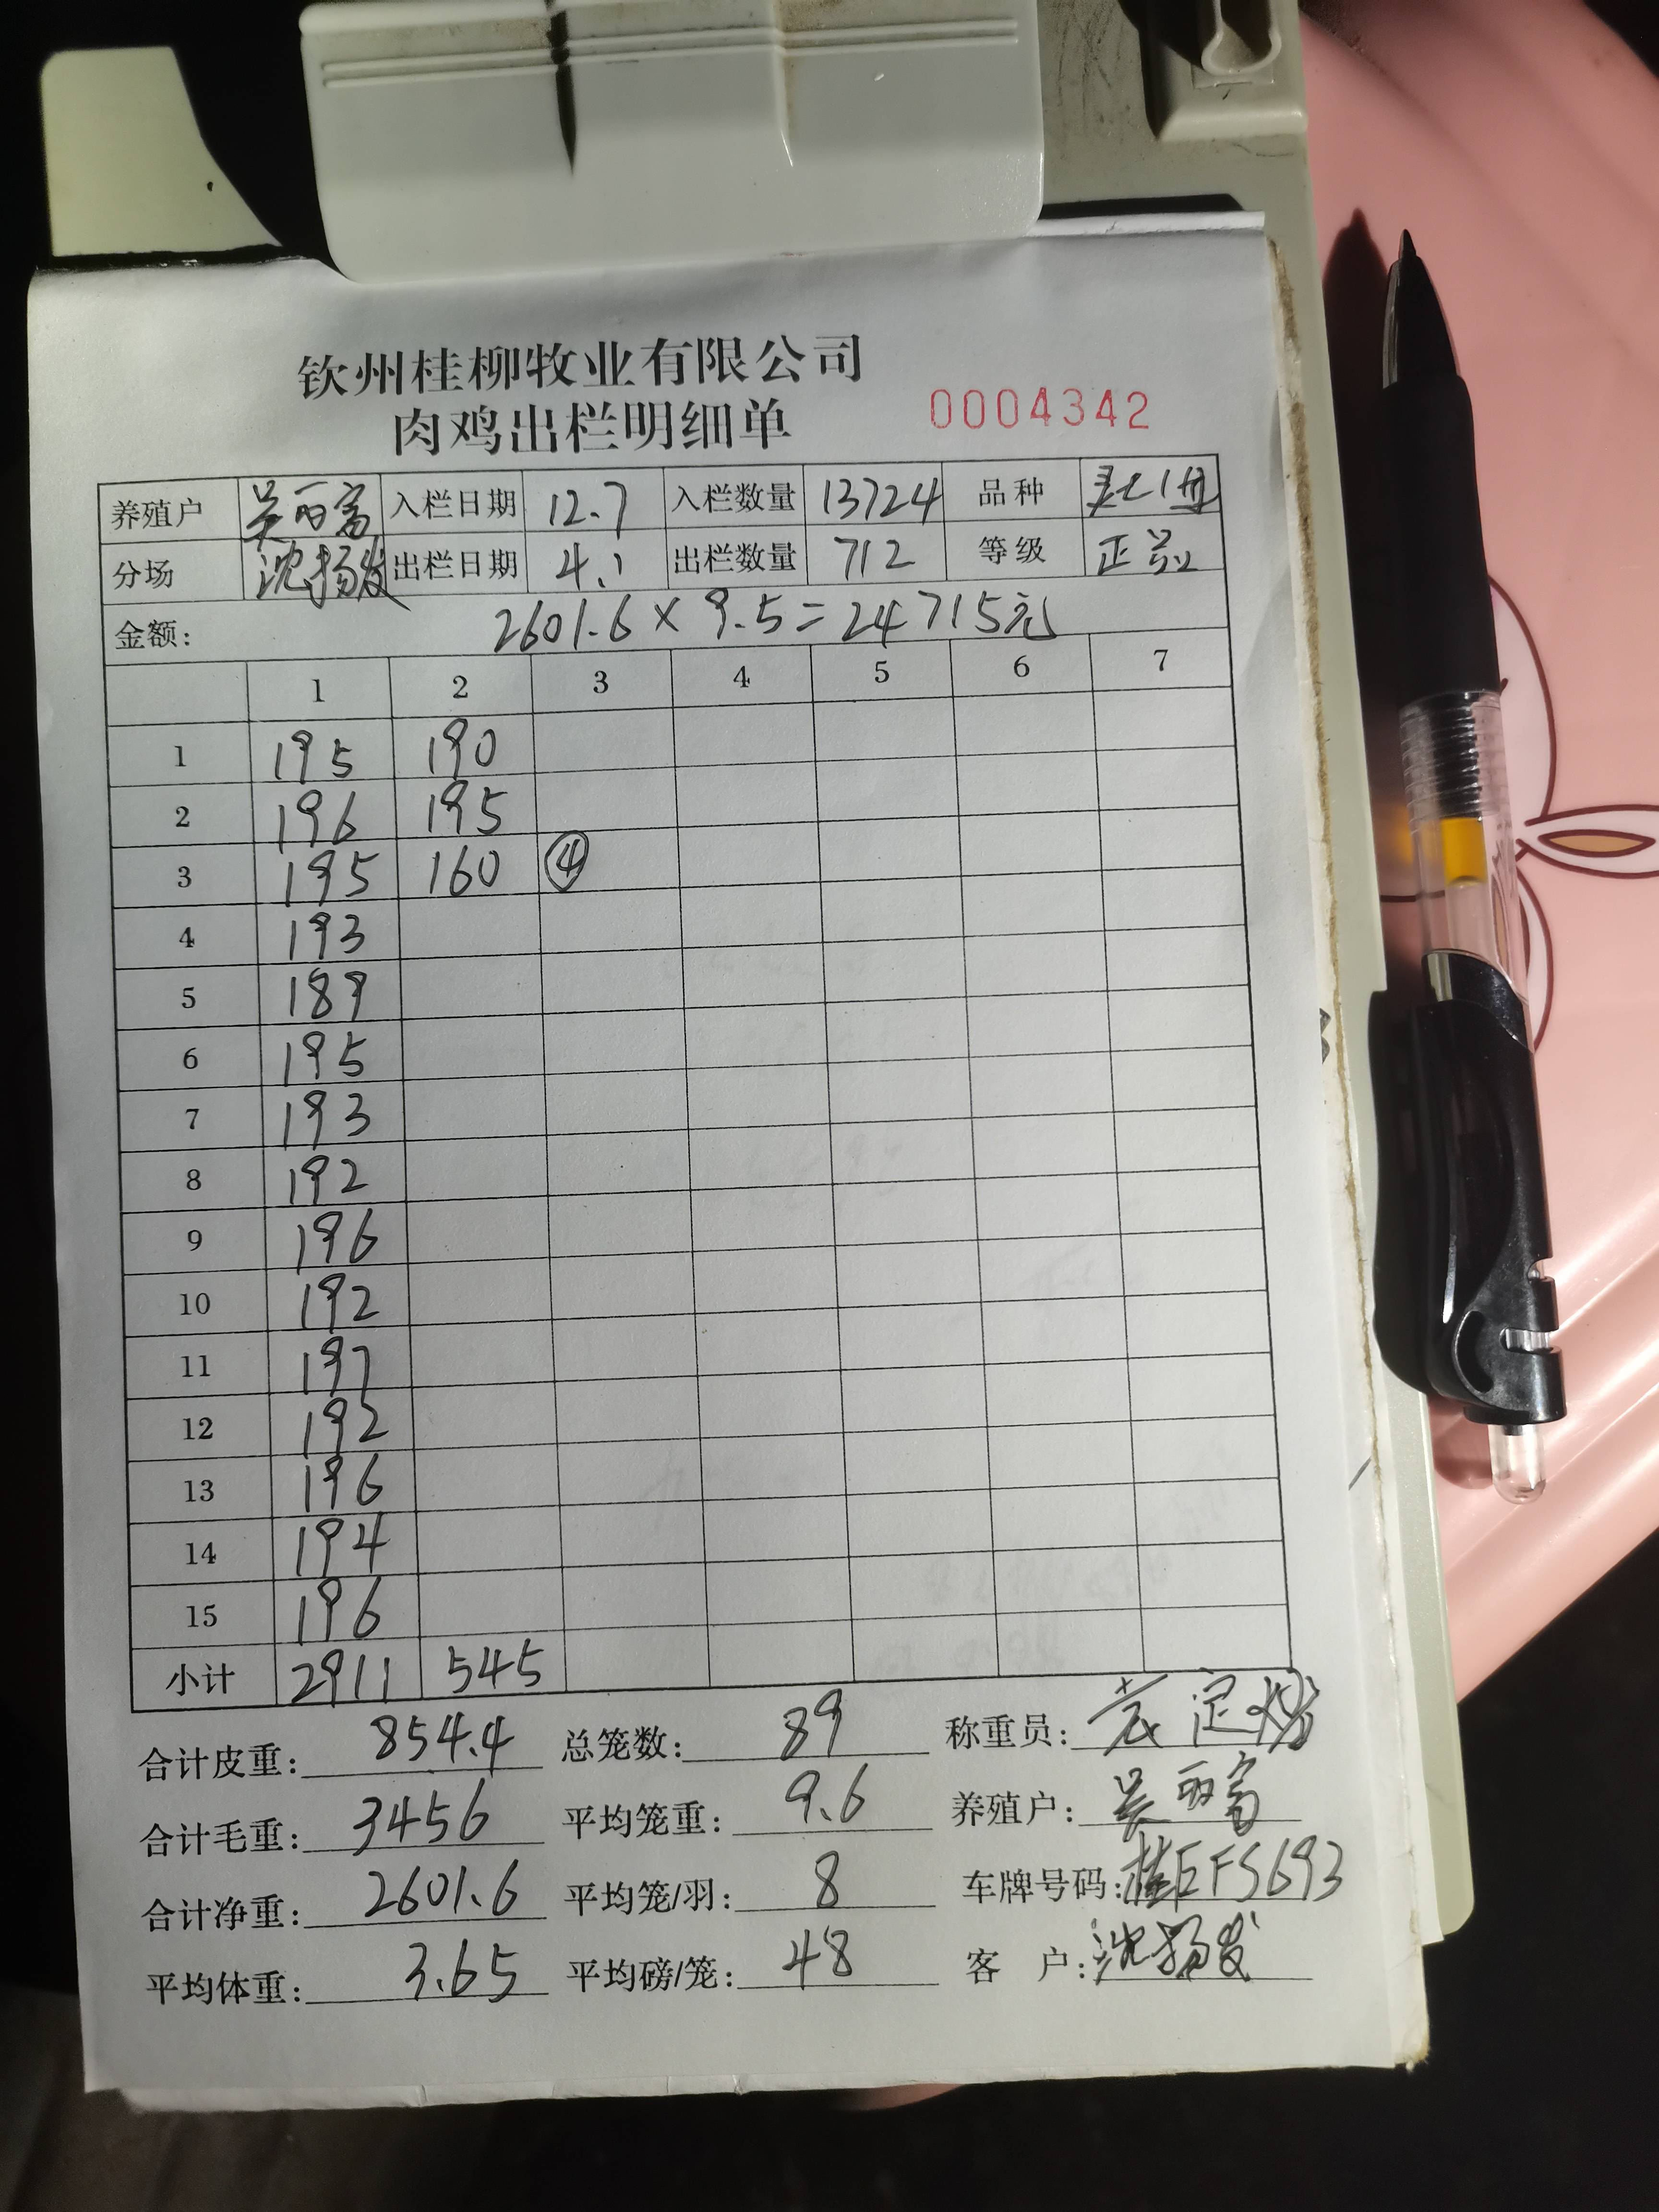 钦州桂柳牧业有限公司
肉鸡出栏明细单 0004342
养殖户 吴丽富 入栏日期 12.7 入栏数量 13724 品种
分场 沈扬发 出栏日期 4.1 出栏数量 712 等级 正品
金额: 2601.6 × 9.5 = 24715元
1 2 3 4 5 6 7
1 195 190
2 196 195
3 195 160 ④
4 193
5 189
6 195
7 193
8 192
9 196
10 192
11 197
12 192
13 196
14 194
15 196
小计 2911 545
合计皮重: 854.4 总笼数: 89 称重员:
合计毛重: 3456 平均笼重: 9.6 养殖户: 吴丽富
合计净重: 2601.6 平均笼/羽: 8 车牌号码: 桂EFS693
平均体重: 3.65 平均磅/笼: 48 客 户: 沈扬发